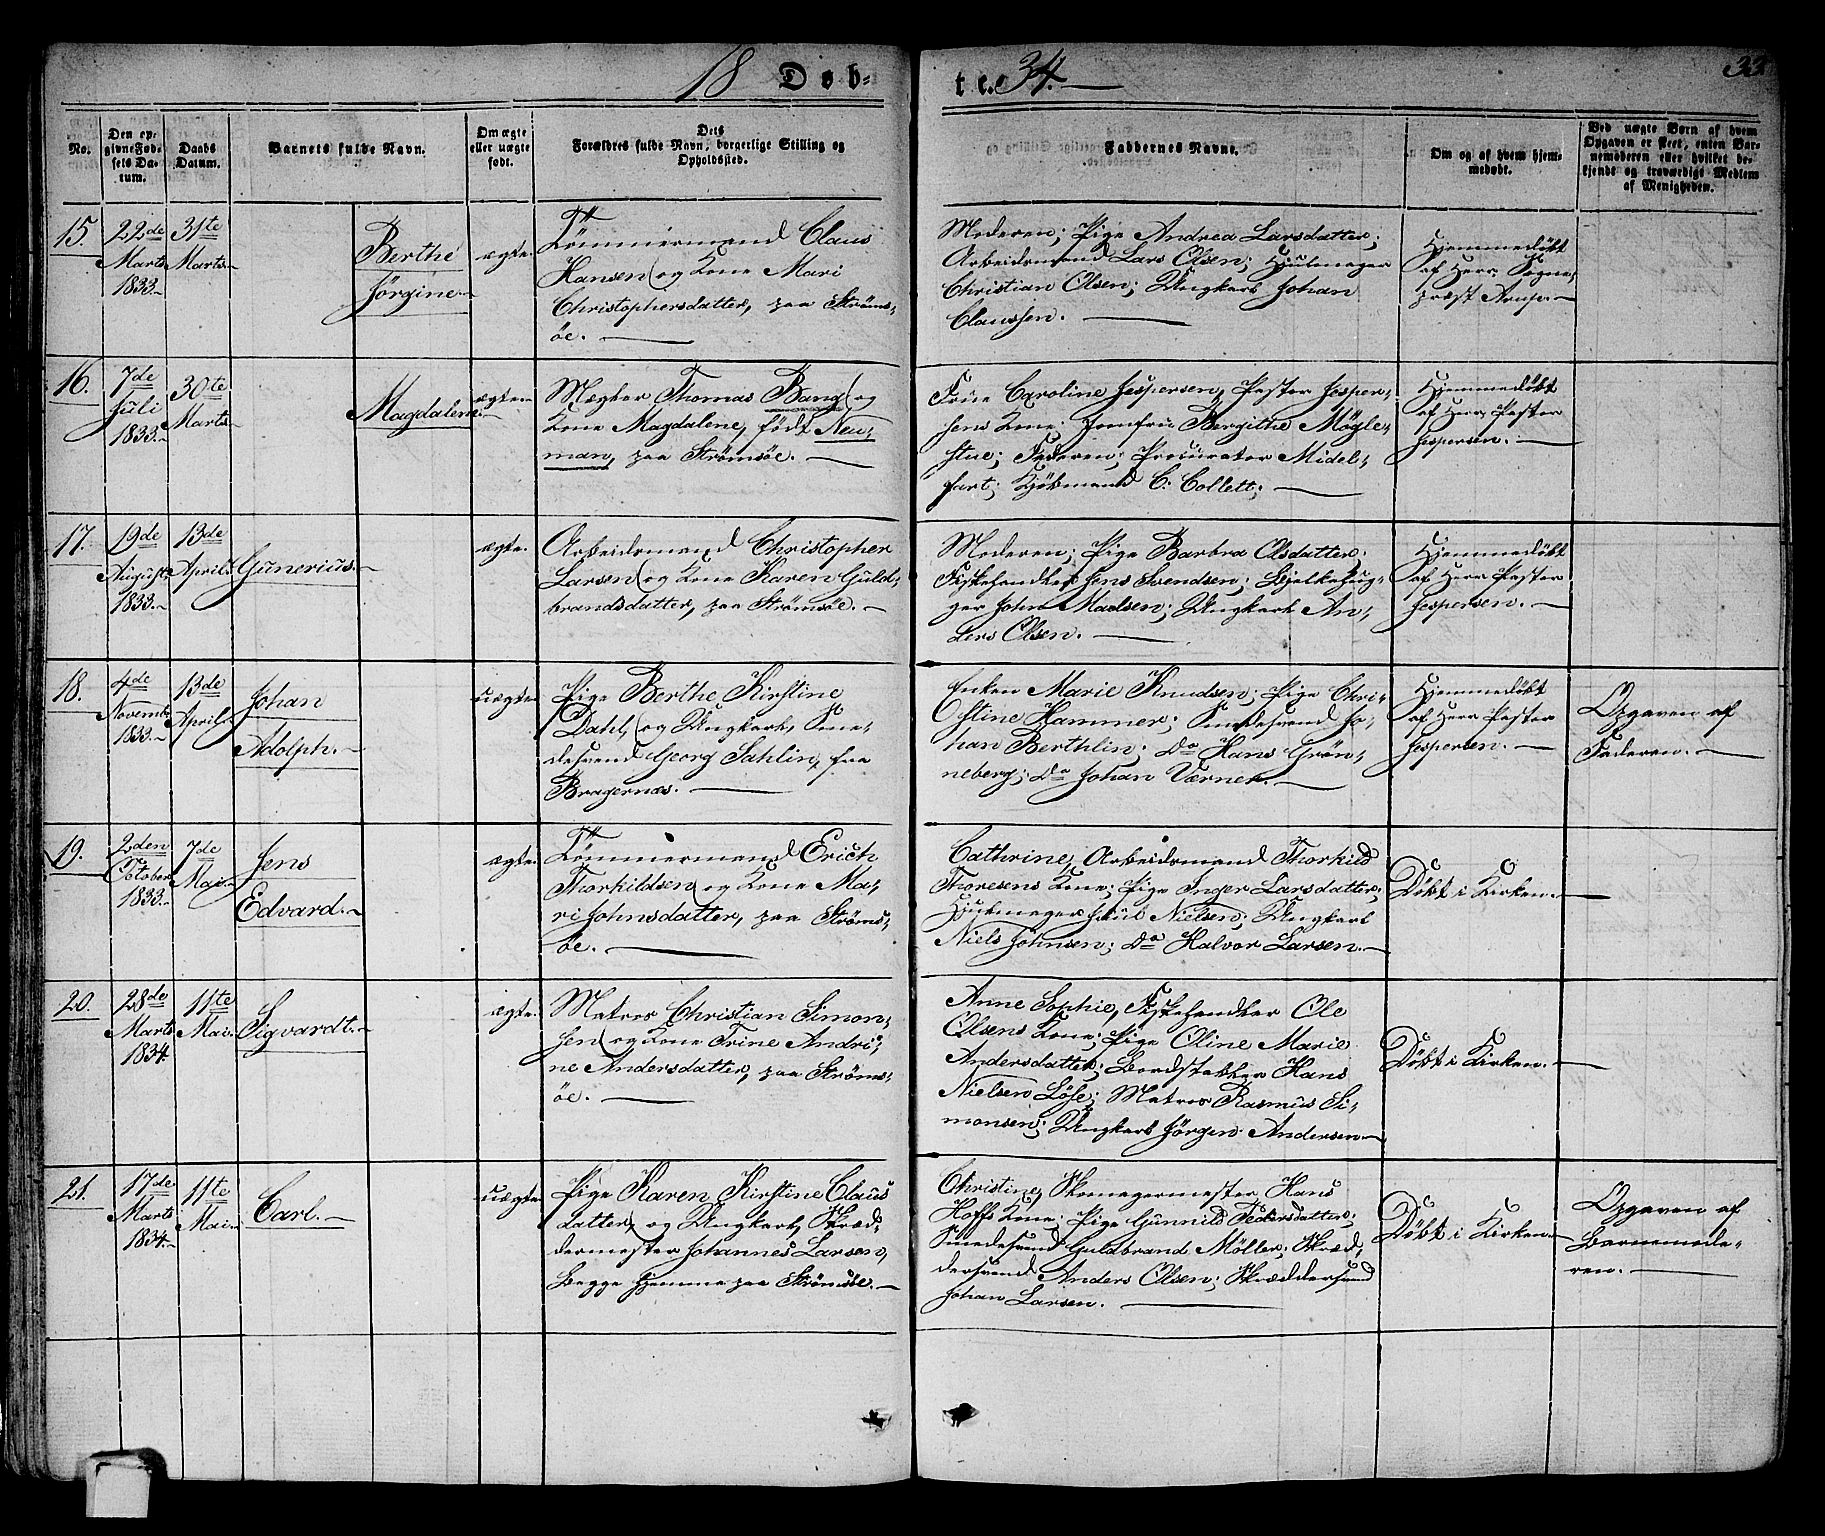 18 Døb-
te. 34.
33
No.
Den op-
givne Fød-
sels Da-
tum.
Daabs
Datum.
Barnets fulde Navn.
Om ægte
eller uægte
født.
Dets
Forældres fulde Navn, borgerlige Stilling og
Opholdssted.
Faddernes Navne.
Om og af hvem hjem-
medøbt.
Ved uægte Børn af hvem
Opgaven er skeet, enten Bar-
nemoderen eller hvilket be-
kjendt og troværdigt Medlem
af Menigheden.
15.
22de
Marts
1833.
31te
Marts
Berthe
Jørgine
ægte
Tømmermand Claus
Hansen og Kone Mari
Christophersdatter, paa Strøms-
øe.
Moderen; Pige Andrea Larsdatter;
Arbeidsmand Lars Olsen; Hjulmager
Christian Olsen; Ungkarl Johan
Claussen.
Hjemmedøbt
af Herr Sogne-
præst Arup.
16.
7de
Juli
1833.
30te
Marts
Magdalene
ægte
Mægler Thomas Bang og
Kone Magdalene, født Neu-
man, paa Strømsøe.
Frue Caroline Jespersen, Pastor Jesper-
sens Kone; Jomfru Bergithe Mögle-
stue; Faderen; Procurator Midel-
fart; Kjøbmand C. Collett;
Hjemmedøbt
af Herr Pastor
Jespersen.
17.
19de
August
1833.
13de
April
Gunerius.
ægte.
Arbeidsmand Christopher
Larsen og Kone Karen Guld-
brandsdatter, paa Strømsøe.
Moderen; Pige Barbra Olsdatter;
Fiskehandler Jens Svendsen; Bjelkehug-
ger John Madsen; Ungkarl An-
ders Olsen.
Hjemmedøbt
af Herr Pastor
Jespersen.
18.
4de
Novemb.
1833.
13de
April
Johan
Adolph.
uægte
Pige Berthe Kirstine
Dahl, og Ungkarl, Sme-
desvend Georg Sahlin, paa
Bragernæs.
Enken Marie Knudsen; Pige Chri-
stine Hammer; Smedesvend Jo-
han Berthlin; Do Hans Grøn-
neberg; Do Johan Værner.
Hjemmedøbt
af Herr Pastor
Jespersen.
Opgaven af
Faderen.
19.
2den
October
1833.
7de
Mai
Jens
Edvard.
ægte
Tømmermand Erich
Thorkildsen og Kone Ma-
ri Johnsdatter, paa Strøms-
øe.
Cathrine, Arbeidsmand Thorkild
Thoresens Kone; Pige Inger Larsdatter;
Hjulmager Juul Nielsen; Ungkarl
Niels Johnsen; Do Halvor Larsen.
Døbt i Kirken.
20.
28de
Marts
1834.
11te
Mai
Sigvardt.
ægte.
Matros Christian Simon-
sen og Kone Trine Andri-
ne Andersdatter, paa Strøms-
øe.
Anne Sophie, Fiskehandler Ole
Olsens Kone; Pige Oline Marie
Andersdatter; Bordstabler Hans
Nielsen Löse; Matros Rasmus Si-
monsen; Ungkarl Jörgen Andersen.
Døbt i Kirken.
21.
17de
Marts
1834.
11te
Mai
Carl.
uægte
Pige Karen Kirstine Claus
datter, og Ungkarl, Skræd-
dermester Johannes Larsen,
begge hjemme paa Strømsøe.
Christine, Skomagermester Hans
Hoffs Kone; Pige Gunnild Pedersdatter;
Smedesvend Guldbrand Möller; Skræd-
dersvend Anders Olsen; Skræddersvend
Johan Larsen.
Døbt i Kirken.
Opgaven af
Barnemode-
ren.